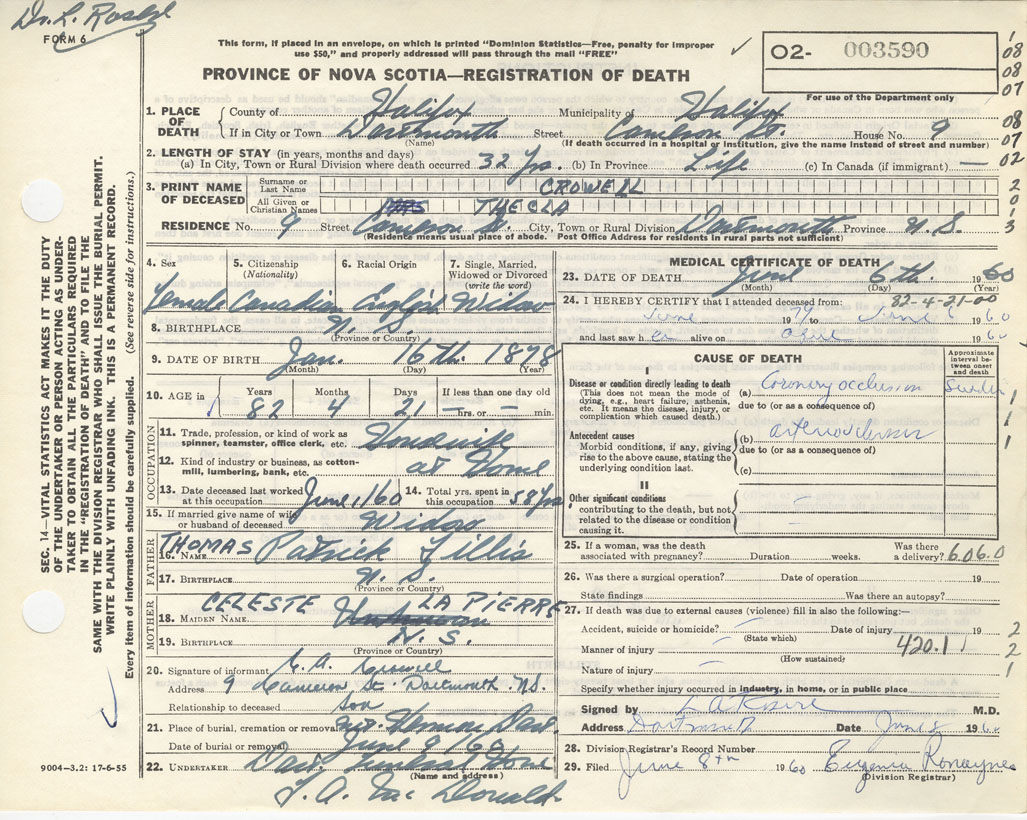 Dr. L.
FORM 6
This form, if placed in an envelope, on which is printed "Dominion Statistics—Free, penalty for improper
use $50," and properly addressed will pass through the mail "FREE"
PROVINCE OF NOVA SCOTIA—REGISTRATION OF DEATH
02- 003590
For use of the Department only
1 08 08 07 08 07 02 2 0 1 3
1. PLACE OF DEATH County of Halifax Municipality of Halifax
If in City or Town Dartmouth Street Cameron St. House No. 9
(Name) (If death occurred in a hospital or institution, give the name instead of street and number)
2. LENGTH OF STAY (in years, months and days)
(a) In City, Town or Rural Division where death occurred 32 yrs. (b) In Province Life (c) In Canada (if immigrant) —
3. PRINT NAME OF DECEASED Surname or Last Name CROWELL
All Given or Christian Names THECLA
RESIDENCE No. 9 Street Cameron St. City, Town or Rural Division Dartmouth Province N.S.
(Residence means usual place of abode. Post Office Address for residents in rural parts not sufficient)
SEC. 14—VITAL STATISTICS ACT MAKES IT THE DUTY
OF THE UNDERTAKER OR PERSON ACTING AS UNDER-
TAKER TO OBTAIN ALL THE PARTICULARS REQUIRED
IN THE "REGISTRATION OF DEATH" AND FILE THE
SAME WITH THE DIVISION REGISTRAR WHO SHALL ISSUE THE BURIAL PERMIT.
WRITE PLAINLY WITH UNFADING INK. THIS IS A PERMANENT RECORD.
Every item of information should be carefully supplied. (See reverse side for instructions.)
4. Sex 5. Citizenship (Nationality) 6. Racial Origin 7. Single, Married, Widowed or Divorced (write the word)
Female Canadian English Widow
8. BIRTHPLACE N.S.
(Province or Country)
9. DATE OF BIRTH Jan. 16th. 1878
(Month) (Day) (Year)
10. AGE in Years 82 Months 4 Days 21 If less than one day old hrs. or min.
OCCUPATION
11. Trade, profession, or kind of work as spinner, teamster, office clerk, etc. Housewife
12. Kind of industry or business, as cotton-mill, lumbering, bank, etc. at Home
13. Date deceased last worked at this occupation June 1/60 14. Total yrs. spent in this occupation 58 yrs.
15. If married give name of wife or husband of deceased Widow
FATHER
16. Name THOMAS Patrick Lillis
17. BIRTHPLACE N.S.
(Province or Country)
MOTHER
18. MAIDEN NAME CELESTE Unknown LA PIERRE
19. BIRTHPLACE N.S.
(Province or Country)
20. Signature of informant E.A. Crowell
Address 9 Cameron St. Dartmouth N.S.
Relationship to deceased son
21. Place of burial, cremation or removal Mt. Herman Dart.
Date of burial or removal June 9, 1960
22. UNDERTAKER Dart. Funeral Home
(Name and address)
T. A. Mac Donald
9004-3.2: 17-6-55
MEDICAL CERTIFICATE OF DEATH
23. DATE OF DEATH June 6th. 1960
(Month) (Day) (Year)
82-4-21-00
24. I HEREBY CERTIFY that I attended deceased from:
June 19 to June 6 1960
and last saw her alive on April 1960
CAUSE OF DEATH
Approximate interval between onset and death
I
Disease or condition directly leading to death
(This does not mean the mode of dying, e.g., heart failure, asthenia, etc. It means the disease, injury, or complication which caused death.)
(a) Coronary occlusion Sudden
due to (or as a consequence of)
Antecedent causes
Morbid conditions, if any, giving rise to the above cause, stating the underlying condition last.
(b)
due to (or as a consequence of)
(c)
II
Other significant conditions contributing to the death, but not related to the disease or condition causing it.
1 1 1 1
25. If a woman, was the death associated with pregnancy? Duration weeks. Was there a delivery? 6060
26. Was there a surgical operation? Date of operation 19
State findings Was there an autopsy?
27. If death was due to external causes (violence) fill in also the following:—
Accident, suicide or homicide? — Date of injury 19 2
(State which)
Manner of injury — 420.1 2
(How sustained)
Nature of injury — 1
Specify whether injury occurred in industry, in home, or in public place
Signed by M.D.
Address Dartmouth Date June 8 1960
28. Division Registrar's Record Number
29. Filed June 8th 1960 Eugenia Ronayne
(Division Registrar)